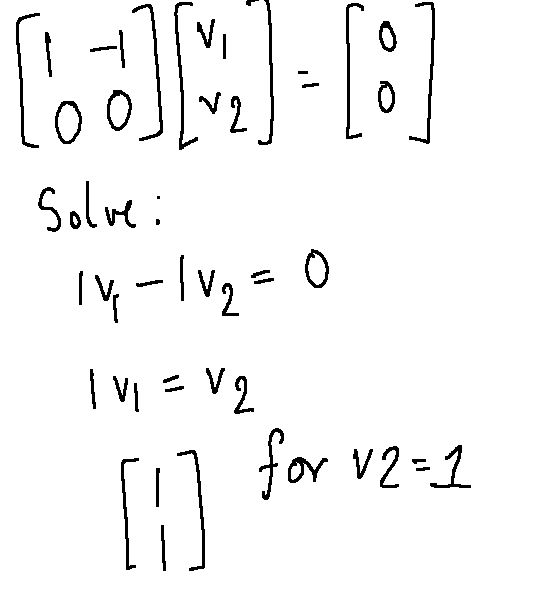 [1 -1] [v1] = [0]
[0 0] [v2] [0]
Solve:
1v1 - 1v2 = 0
1v1 = v2
[1] for v2=1
[1]